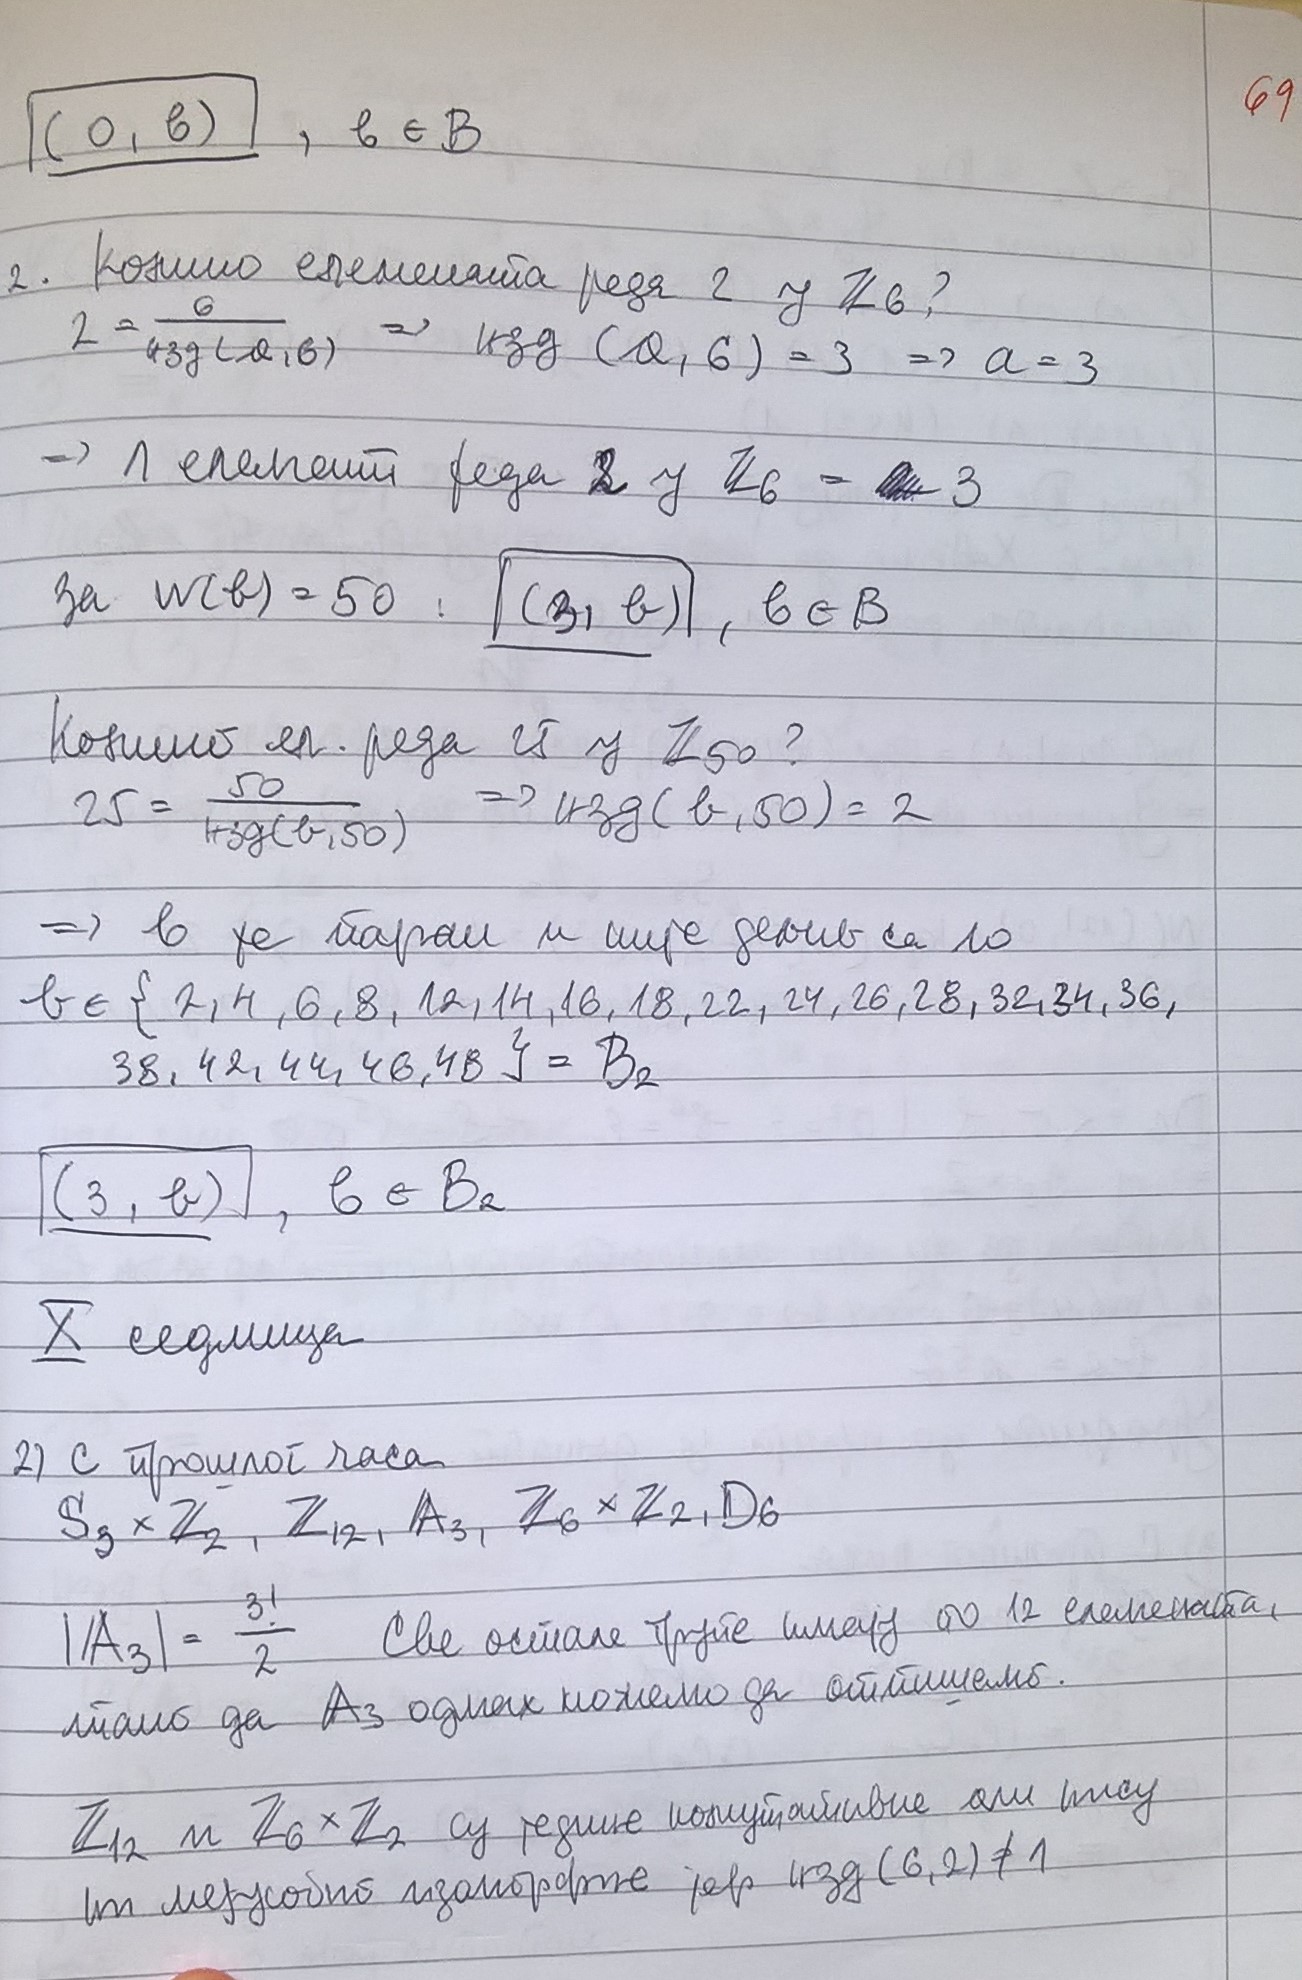 69
(0, b), b ∈ B
2. Колико елемената реда 2 у ℤ6?
2 = 6/нзд(a,6) => нзд(a,6) = 3 => a = 3
=> 1 елемент реда 2 у ℤ6 - 3
за w(b) = 50 : (3, b), b ∈ B
Колико ел. реда 25 у ℤ50?
25 = 50/нзд(b,50) => нзд(b,50) = 2
=> b је паран и није дељив са 10
b ∈ {2, 4, 6, 8, 12, 14, 16, 18, 22, 24, 26, 28, 32, 34, 36,
38, 42, 44, 46, 48} = B2
(3, b), b ∈ B2
X седмица
2) С прошлог часа
S3 × ℤ2, ℤ12, A3, ℤ6 × ℤ2, D6
|A3| = 3!/2 Све остале групе имају по 12 елемената,
тако да A3 одмах можемо да отпишемо.
ℤ12 и ℤ6 × ℤ2 су једине комутативне али нису
ни међусобно изоморфне јер нзд(6,2) ≠ 1